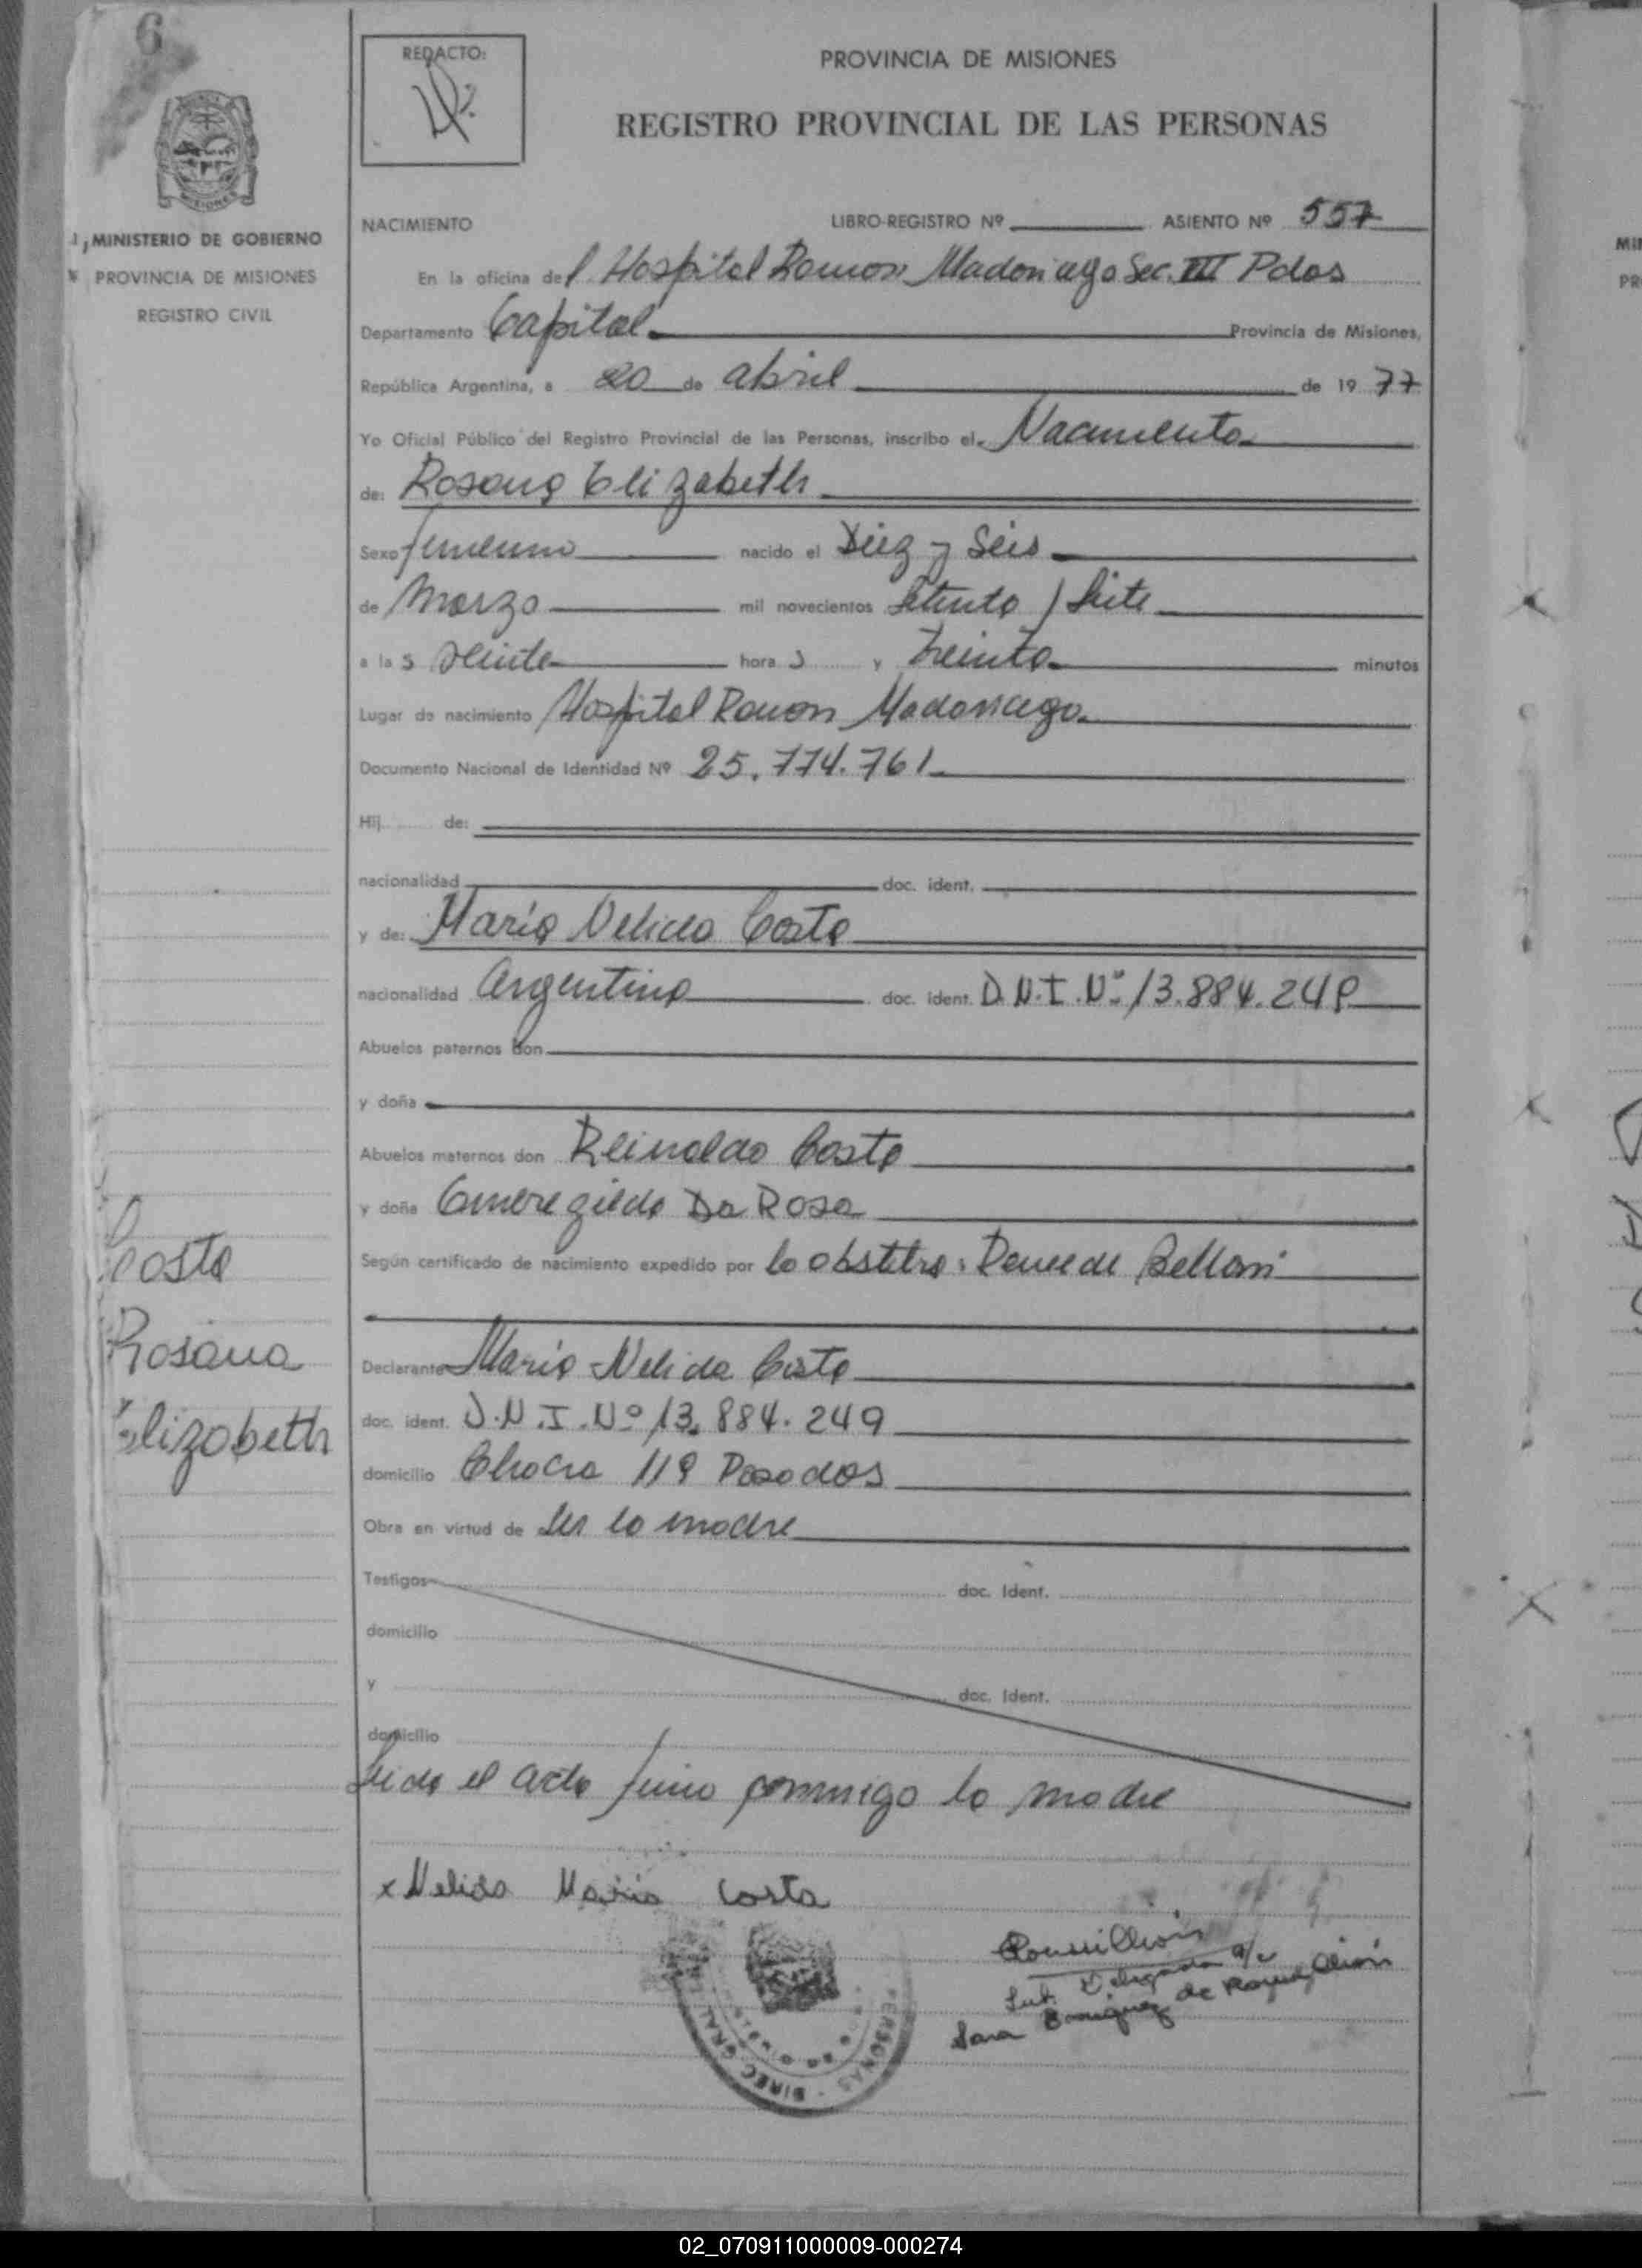 6
REDACTO:
PROVINCIA DE MISIONES
REGISTRO PROVINCIAL DE LAS PERSONAS
MISIONES
MINISTERIO DE GOBIERNO
PROVINCIA DE MISIONES
REGISTRO CIVIL
NACIMIENTO LIBRO-REGISTRO Nº ASIENTO Nº 557
En la oficina del Hospital Ramon Madariaga Sec. III Pdas
Departamento Capital Provincia de Misiones,
República Argentina, a 20 de abril de 1977
Yo Oficial Público del Registro Provincial de las Personas, inscribo el Nacimiento
de: Rosana Elizabeth
Sexo femenino nacido el Diez y Seis
de Marzo mil novecientos Setenta y Siete
a las veinte horas y treinta minutos
Lugar de nacimiento Hospital Ramon Madariaga
Documento Nacional de Identidad Nº 25.774.761
Hij de:
nacionalidad doc. ident.
y de: Maria Nelida Costa
nacionalidad Argentina doc. ident. D.N.I. Nº 13.884.249
Abuelos paternos don
y doña
Abuelos maternos don Reinaldo Costa
y doña Emeregilda Da Rosa
Según certificado de nacimiento expedido por la obstetra: de Belloni
Declarante Maria Nelida Costa
doc. ident. D.N.I. Nº 13.884.249
domicilio Chacra 119 Posadas
Obra en virtud de Ser la madre
Testigos doc. Ident.
domicilio
y doc. Ident.
domicilio
Leida el acta firma conmigo la madre
x Nelida Maria Costa
Sub. Delegada a/c
Sara de
PERSONAS - DIREC. GRAL
Costa
Rosana
Elizabeth
MI
PR
02_070911000009-000274